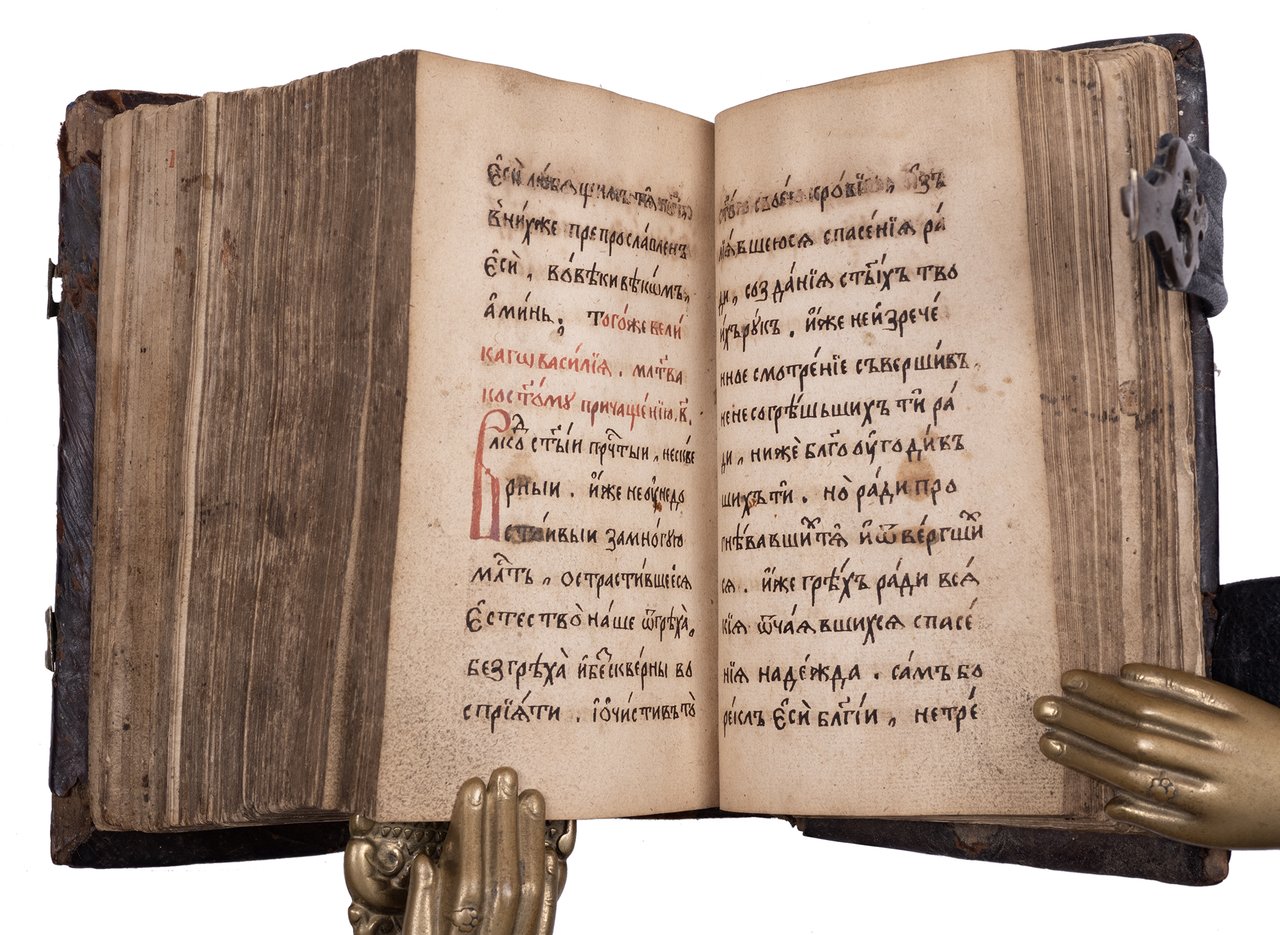 є҆сѝ лю́бѧщимъ тѧ̀
в̾ни́хже препросла́вленъ
є҆сѝ, во́вѣки вѣкѡ́мъ,
а҆ми́нь; тогѡ́же вели́
кагѡ васи́лїѧ. мл҃тва
ко ст҃о́му прича́щенїю, в҃.
Влⷣко ст҃ы́и прⷱ҇тыи, нескве́
рныи. и҆́же неоу҆недо
ста́ивыи за мно́гую
млⷭ҇ть, острасти́вшеесѧ
є҆стество̀ на́ше ѿ грѣха̀,
без грѣха̀ и҆ беⷥскве́рны во
спрїѧ́ти. і҆ ѻ҆чи́стивъ то̀
своє́ю кро́вїю, и҆зъ
лїѧ́вшеюсѧ спасе́нїѧ ра́
ди, созда́нїѧ ст҃ы́хъ тво
и́хъ рукъ. и҆́же неи҆зрече́
нное смотре́нїе съверши́въ,
не несогрѣ́шьшихъ тѝ ра́
ди, нижѐ бл҃гооу҆годи́въ
шихъ тѝ. но̀ ра́ди про
гнѣ́вавшиⷯ тѧ̀ и҆ ѿве́ргшиⷯ
сѧ. и҆́же грѣ́хъ ра́ди всѧ́
кїѧ ѿча́ѧвшихсѧ спасе́
нїѧ наде́жда. са́мъ бо
ре́клъ є҆сѝ бл҃гі́и, не тре́